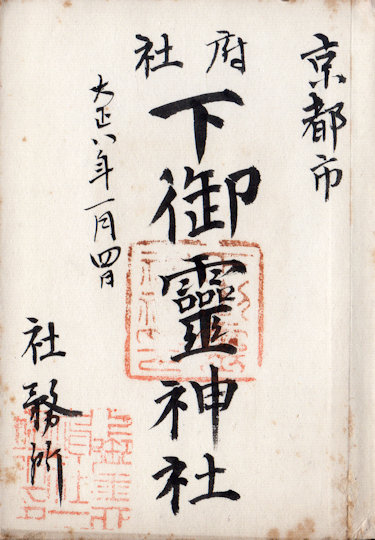 京都市
府社
下御靈神社
大正八年一月四日
社務所